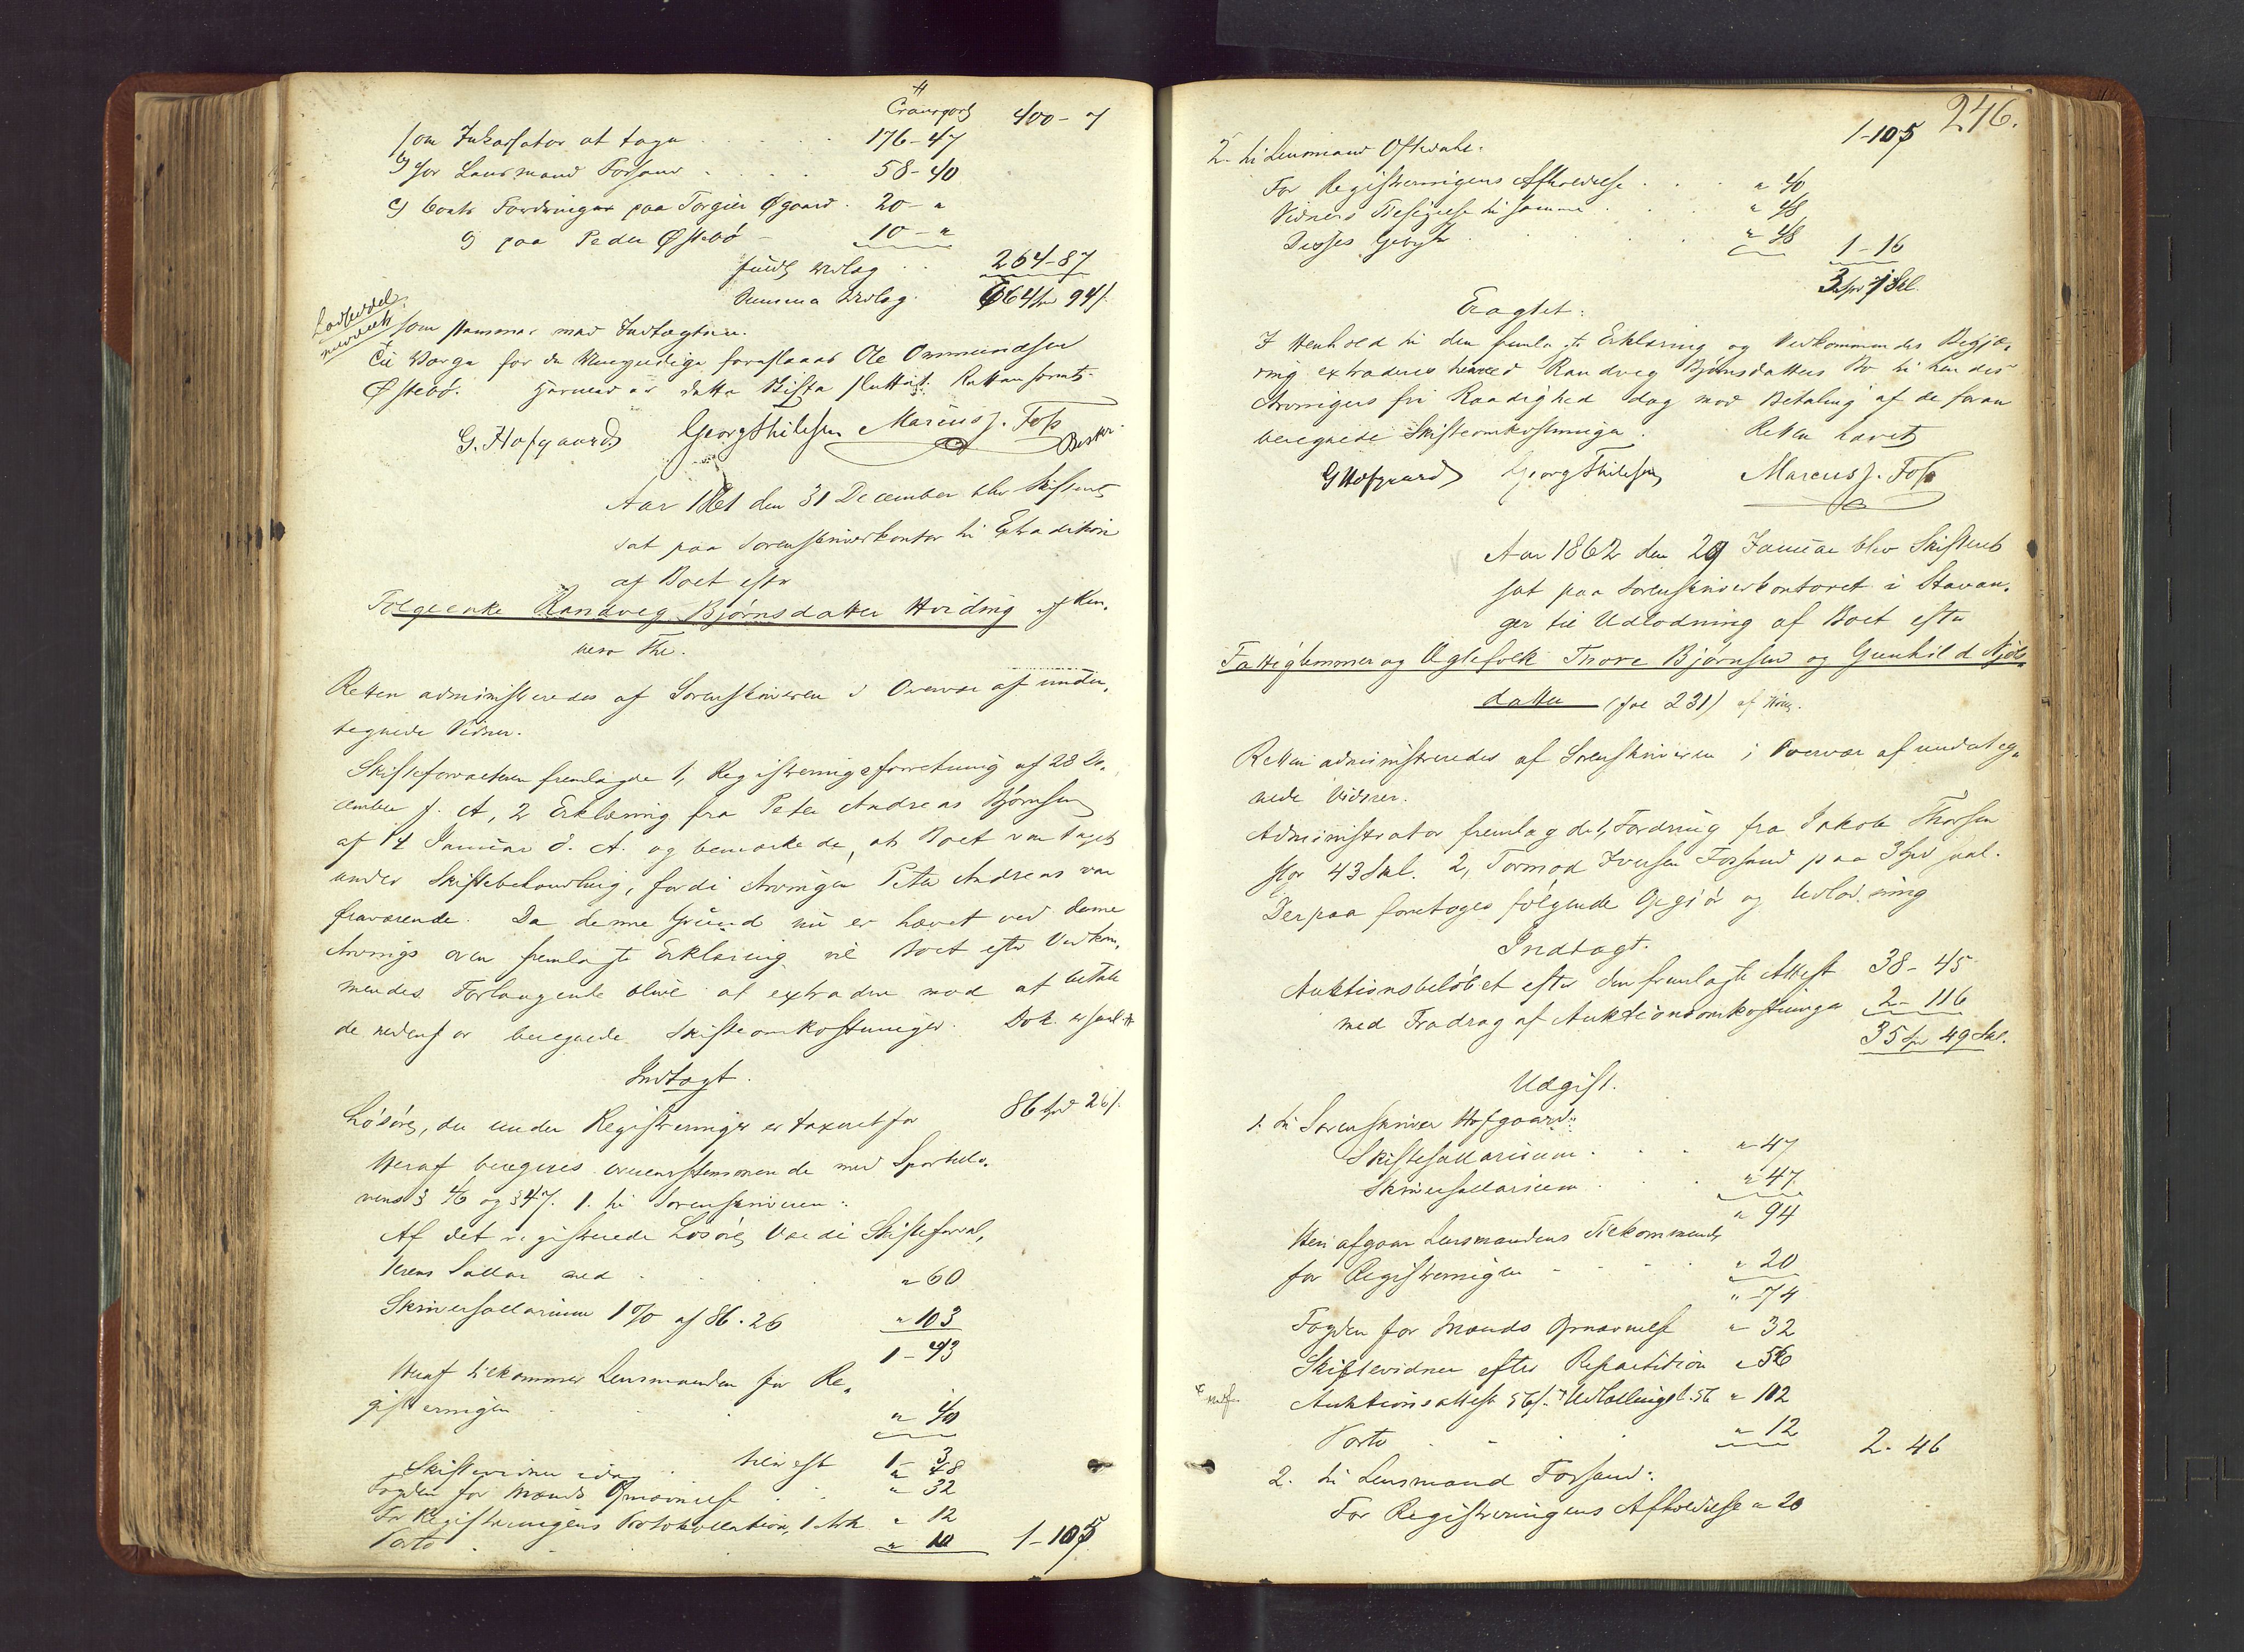 Transport 400-7
som Inkassator at tage . . . . 176-47
b) hos Lensmand Forsand . . . . 58-40
c) Boets Fordringer paa Torgier Øgaard . 20-"
d) paa Peder Østebø - 10-"
264-87
Summa Udlæg . 664 Spd 94 s.
Lodseddel
meddeelt
som stemmer med Indtægten.
Til Værge for de Umyndige foreslaaes Ole Ommundsen
Østebø. Hermed er dette Skifte sluttet. Retten hævet.
G. Hofgaard Georg Thilesen Marcus J. Foss
Aar 1861 den 31 December blev Skifteret
sat paa Sorenskriverkontor til Extradition
af Boet efter
Følgeenke Randveg Bjørnsdatter Hviding af Ren-
neso Thl.
Retten administreredes af Sorenskriveren i Overvær af under-
tegnede Vidner.
Skifteforvalteren fremlagde 1, Registreringsforretning af 28 De-
cember f. A, 2 Erklæring fra Peter Andreas Bjørnsen
af 14 Januar d. A. og bemærkede, at Boet var taget
under Skiftebehandling, fordi Arvingen Peter Andreas var
fraværende. Da denne Grund nu er hævet ved denne
Arvings oven fremlagte Erklæring vil Boet efter Vedkom-
mendes Forlangende blive at extradere mod at betale
de nedenfor beregnede Skifteomkostninger.
Indtægt.
Løsøre, der under Registreringen er taxeret for 86 Spd 26 s.
Heraf beregnes overensstemmende med Sportello-
vens § 46 og § 47. 1. til Sorenskriveren:
Af det registrerede Løsøres Værdi Skifteforval-
terens Sallar med . . . " 60
Skriversallarium 1 % af 86.26 " 103
1-43
Heraf tilkommer Lensmanden for Re-
gistreringen . . . " 40
Skiftevidner idag . tilrest 1-3
" 48
Fogden for Mænds Opnævnelse . . " 32
For Registreringens Protokollation, 1 Ark " 12
Porto . . . " 10 1-105
246.
1-105
2. til Lensmand Oftedahl:
For Registreringens Afholdelse . . . " 40
Vidners Tilsigelse til samme . . . " 48
Disses Gebyr . . . . " 48 1-16
3 Spd 1 Skl.
Eragtet:
I Henhold til den fremlagte Erklæring og Vedkommendes Begjæ-
ring extraderes herved Randveg Bjørnsdatters Bo til hendes
Arvingers fri Raadighed dog mod Betaling af de foran
beregnede Skifteomkostninger. Retten hævet
G Hofgaard Georg Thilesen Marcus J. Foss
Aar 1862 den 29 Januar blev Skifteret
sat paa Sorenskriverkontoret i Stavan-
ger til Udlodning af Boet efter
Fattiglemmer og Ægtefolk Thore Bjørnsen og Gunhild Njæls-
datter (fol 231)
Retten administreredes af Sorenskriveren i Overvær af underteg-
nede Vidner.
Administrator fremlagde 1, Fordring fra Jakob Thorsen
stor 43 Skl. 2, Tormod Iversen Forsand paa 3 Spd
Derpaa foretoges følgende Opgjør og Udlodning
Indtægt.
Auktionsbeløbet efter den fremlagte Attest 38-45
med Fradrag af Auktionsomkostninger 2-116
35 Spd 49 Skl.
Udgift.
1. til Sorenskriver Hofgaard:
Skiftesallarium . . . " 47
Skriversallarium . . . " 47
" 94
Heri afgaar Lensmandens Tilkommende
for Registreringen - - - - " 20
" 74
Fogden for Mænds Opnævnelse " 32
Skiftevidner efter Repartition " 56
Auktionsattest 56 s. Udlodningst. 56 " 112
Porto . . . " 12 2-46
2. til Lensmand Forsand:
For Registreringens Afholdelse " 20